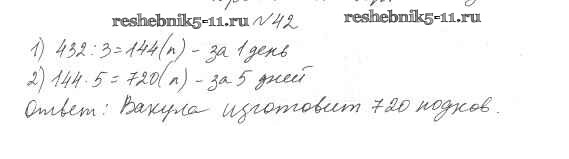 reshebnik5-11.ru №42 reshebnik5-11.ru
1) 432 : 3 = 144 (п) - за 1 день
2) 144 · 5 = 720 (п) - за 5 дней
Ответ: Вакула изготовит 720 подков.